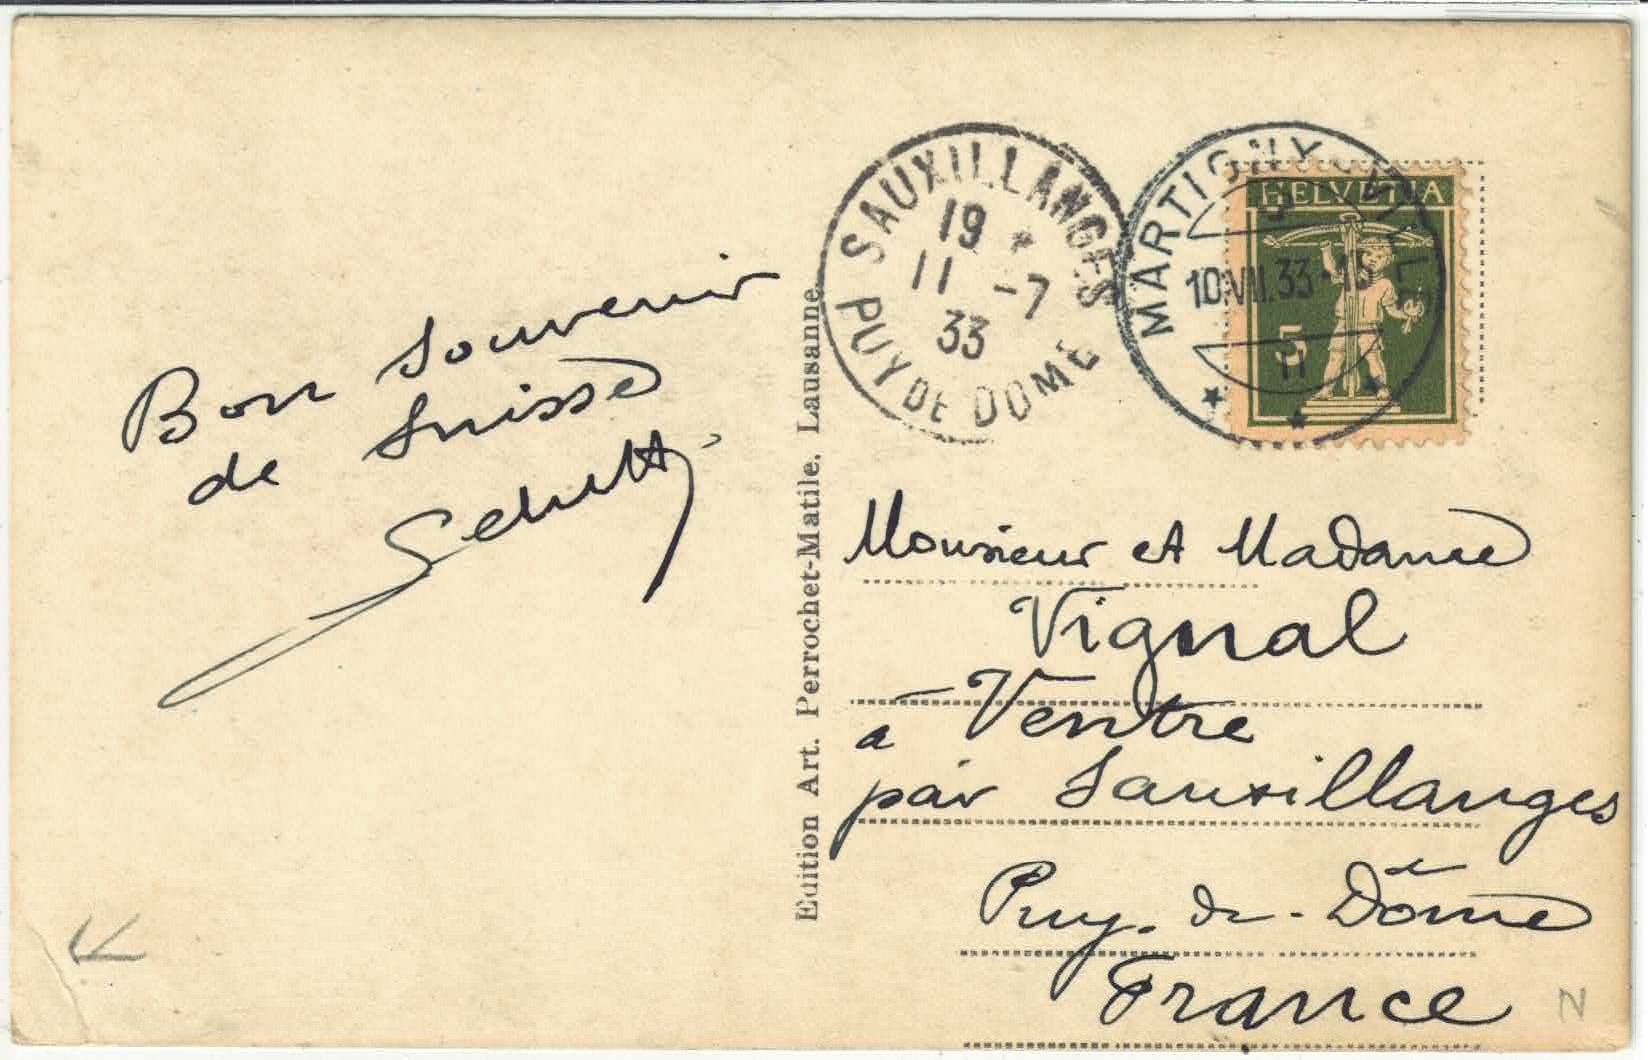 Bon souvenir
de Suisse
Edition Art. Perrochet-Matile, Lausanne.
SAUXILLANGES
19 *
11 -7
33
PUY DE DOME
MARTIGNY-VILLE
10.VII.33-15
HELVETIA
5
Monsieur et Madame
Vignal
à Ventre
par Sauxillanges
Puy-de-Dôme
France
N